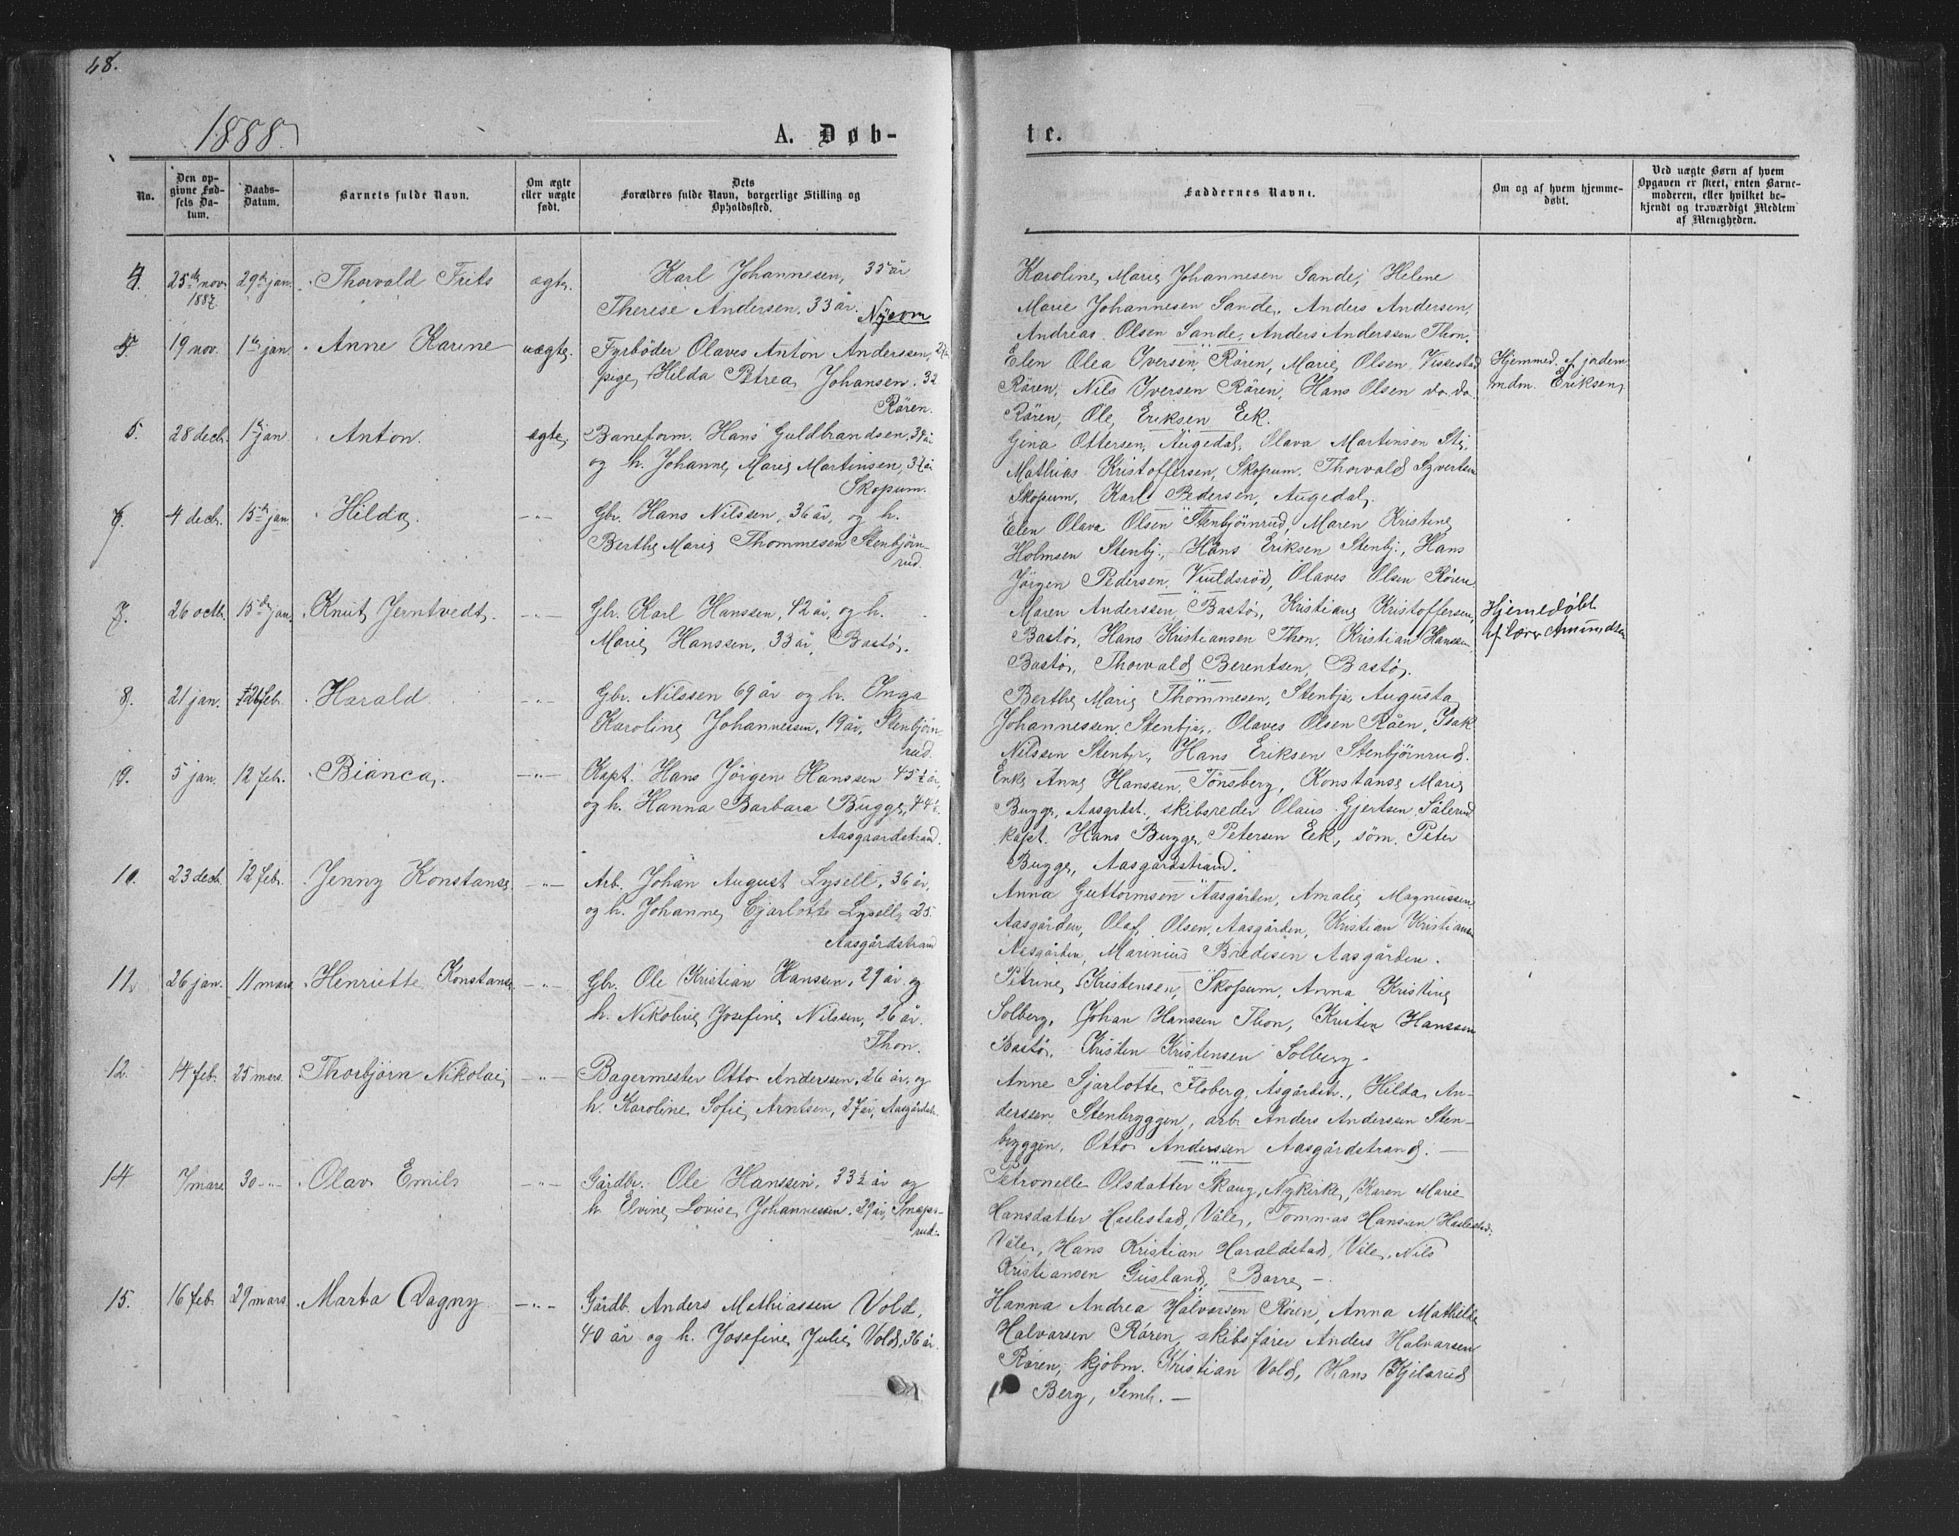 48.
1888.
A. Døb-
te.
No.
Den op-
givne Fød-
sels Da-
tum.
Daabs-
Datum.
Barnets fulde Navn.
Om ægte
eller uægte
født.
Dets
Forældres fulde Navn, borgerlige Stilling og
Opholdssted.
Faddernes Navne.
Om og af hvem hjemme-
døbt.
Ved uægte Børn af hvem
Opgaven er skeet, enten Barne-
moderen, eller hvilket be-
kjendt og troværdigt Medlem
af Menigheden.
4. 25de nov. 1887 29de jan. Thorvald Frits ægte.
Karl Johannesen, 35 år
Therese Andersen, 33 år.
Nyrom
Karoline Marie Johannesen Sande, Helene
Marie Johannesen Sande, Anders Andersen,
Andreas Olsen Sande, Anders Anderssen Thon.
19 nov. 1ste jan. Anne Karine uægte.
Fyrbøder Olaves Anton Andersen,
pige Hilda Petrea Johansen, 32
Røren.
Elen Olea Iversen Røren, Marie Olsen Vissestad
Røren, Nils Iversen Røren, Hans Olsen do. do.
Røren, Ole Eriksen Eek.
Hjemmed. af jordem.
mdm. Eriksen,
5. 28 decb. 1ste jan Anton. ægte,
Baneform. Hans Guldbrandsen, 39 år
og h. Johanne Marie Martinsen, 37 år
Skopum.
Gina Ottersen, Augedal, Olava Martinsen Sti,
Mathias Kristoffersen, Skopum, Thorvald Syvertsen
Skopum, Karl Pedersen, Augedal.
4 decb. 15de jan Hilda. -"-
Gbr. Hans Nilssen, 36 år, og h.
Berthe Marie Thommesen Stenbjørn-
rud.
Elen Olava Olsen Stenbjørnrud, Maren Kristine
Holmsen Stenbj., Hans Eriksen Stenbj., Hans
Jørgen Pedersen, Vuldsrød, Olaves Olsen Røren
7. 26 octb. 15de jan. Knut Jerntvedt. -"-
Gbr. Karl Hanssen, 42 år, og h.
Marie Hanssen, 33 år, Bastø.
Maren Anderssen Bastø, Kristiane Kristoffersen,
Bastø, Hans Kristiansen Thon, Kristian Hanssen
Bastø, Thorvald Berentsen, Bastø.
Hjemedøbt
af Lærer Amundsen
8. 21 jan. feb. Harald -"-
Gbr. Nilssen 69 år og h. Inga
Karoline Johannessen, 19 år, Stenbjørn
rud.
Berthe Marie Thommesen, Stenbj., Augusta
Johannessen, Stenbj., Olaves Olsen Råen, Isak
Nilssen Stenbj., Hans Eriksen Stenbjørnrud.
9. 5 jan. 12 feb. Bianca. -"-
Kapt. Hans Jørgen Hanssen 45½ år,
og h. Hanna Barbara Bugge,
Aasgaardstrand.
Enke Anne Hanssen, Tønsberg, Konstanse Marie
Bugge, Aasgrdst., skibsreder Olaus Gjertsen Sålerud
kapt. Hans Bugge Petersen Eek, søm. Peter
Bugge, Aasgårdstrand.
10. 23 decb. 12 feb. Jenny Konstanse -"-
Arb. Johan August Lysell, 36 år,
og h. Johanne Cjarlotte Lysell, 25.
Aasgårdstrand
Anna Guttormsen Aasgården, Amalie Magnussen
Aasgården, Olaf Olsen, Aasgården, Kristian Kristians.
Aasgården, Marinius Bredesen Aasgården.
11. 26 jan. 11 mars. Henriette Konstanse -"-
Gbr. Ole Kristian Hanssen, 29 år og
h. Nikoline Josefine Nilssen, 26 år.
Thon.
Petrine Kristensen, Skopum, Anna Kristine
Solberg, Johan Hanssen Thon, Kristen Hanssen
Bastø, Kristen Kristensen Solberg.
12. 14 feb. 25 mars. Thorbjørn Nikolai -"-
Bagermester Otto Anderssen, 26 år, og
h. Karoline Sofie Arntsen, 27 år, Aasgårdstr.
Anne Sjarlotte Floberg, Åsgårdstr., Hilda An-
derssen Stenbryggen, arb. Anders Anderssen Sten-
bryggen, Otto Anderssen Aasgårdstrand. —
14. 7 mars 30 -"- Olav Emil -"-
Gårdbr. Ole Hanssen, 33½ år og
h. Elvine Lovise Johannessen, 29 år, Snaps-
rud.
Petronelle Olsdatter Skaug, Nykirke, Karen Marie
Hansdatter Haslestad, Våle, Tommas Hansen Haslestad,
Våle, Hans Kristian Haraldstad, Våle, Nils
Kristiansen Gusland, Borre, —
15. 16 feb. 29 mars. Marta Dagny -"-
Gårdb. Anders Mathiassen Vold,
40 år og h. Josefine Julie Vold, 36 år.
Hanna Andrea Halvorsen Røren, Anna Mathilde
Halvorsen Røren, skibsfører Anders Halvorsen
Røren, kjøbm. Kristian Vold, Hans Kjilsrud
Berg, Semb. —